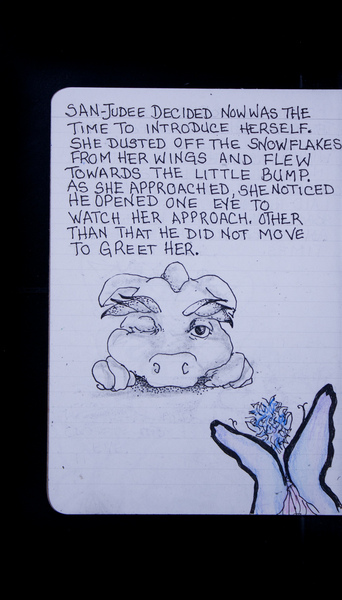 SAN-JUDEE DECIDED NOW WAS THE
TIME TO INTRODUCE HERSELF.
SHE DUSTED OFF THE SNOWFLAKES
FROM HER WINGS AND FLEW
TOWARDS THE LITTLE BUMP.
AS SHE APPROACHED, SHE NOTICED
HE OPENED ONE EYE TO
WATCH HER APPROACH. OTHER
THAN THAT HE DID NOT MOVE
TO GREET HER.